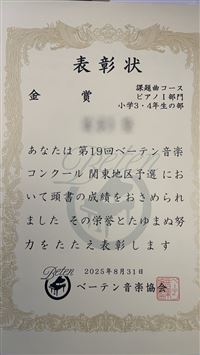 表彰状
課題曲コース
ピアノⅠ部門
小学3・4年生の部
金賞
あなたは第19回ベーテン音楽
コンクール 関東地区予選にお
いて頭書の成績をおさめられ
ました その栄誉とたゆまぬ努
力をたたえ表彰します
Beten
2025年8月31日
Beten
ベーテン音楽協会